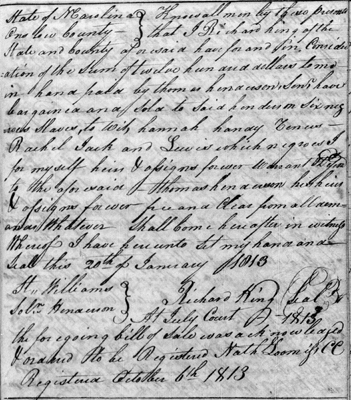 State of N Carolina } Know all men by these presents
Onslow County } that I Richard King of the
State and County aforesaid have for and in Consider
ation of the Sum of twelve hundred dollars to me
in hand paid by thomas henderson Senr have
bargaind and Sold to Said henderson Six neg
roes Slaves, to Wit, hannah handy Venus
Rachel Jack and Lewis which negroes I
for myself heirs & assigns forever Warrant
to the aforesaid Thomas henderson his heirs
& assigns forever free and Clear from all
Whatever Shall Come hereafter in witness
Whereof I have hereunto Set my hand and
Seal this 20th of January 1813
Williams } Richard King Seal
Henderson } At July Court 1813
the foregoing bill of Sale was acknowledged
& ordered to be Registered Nath Loomis CC
Registered October 6th 1813